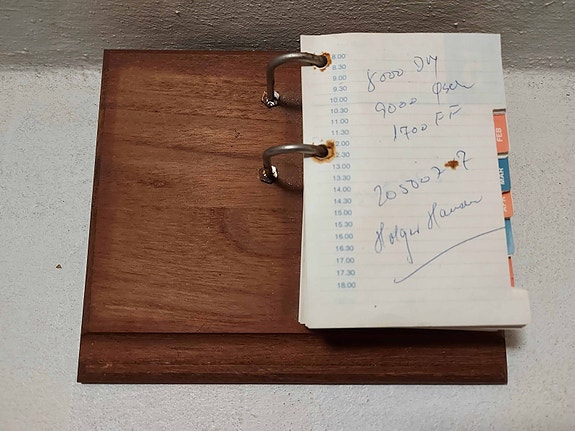 8.00
8.30
9.00
9.30
10.00
10.30
11.00
11.30
12.00
12.30
13.00
13.30
14.00
14.30
15.00
15.30
16.00
16.30
17.00
17.30
18.00
8000 Dm
9000 Øsch
1700 FF
Holger
FEB
MAR
APR